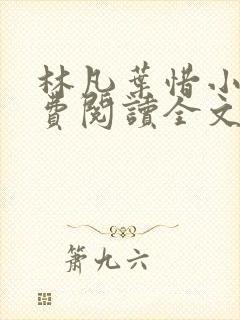 林凡葉惜小
費閱讀全文
簫九六